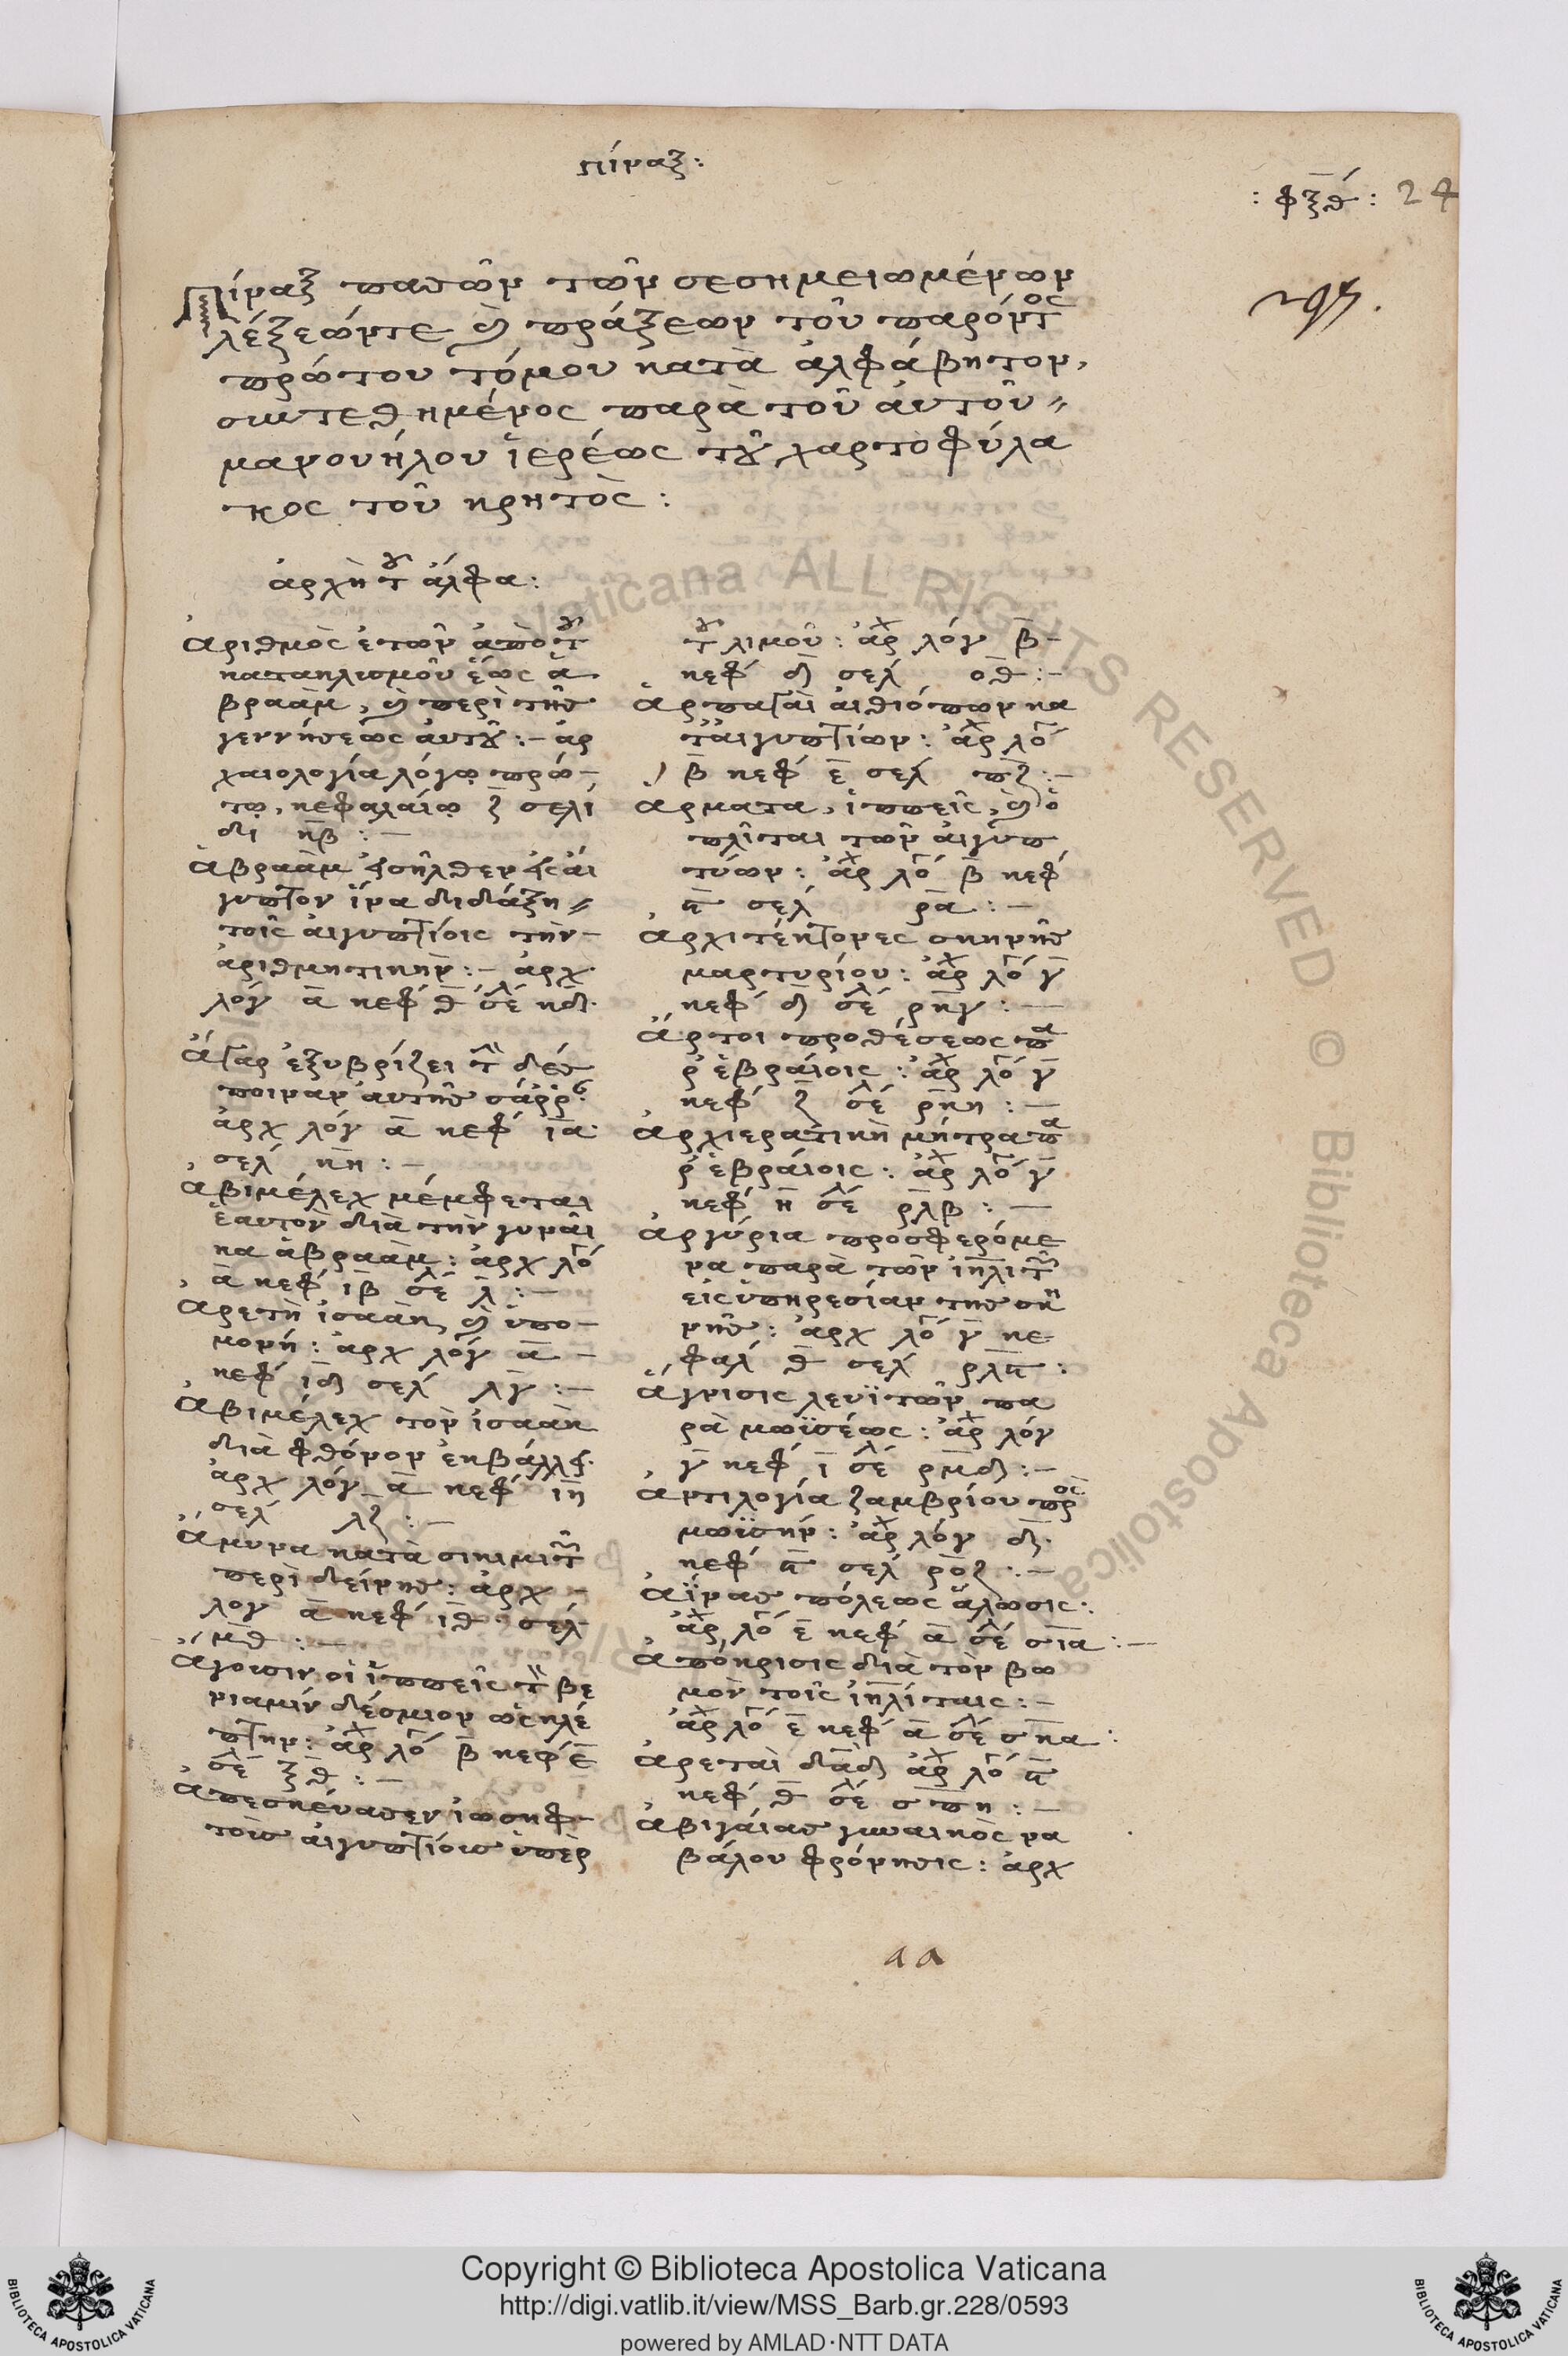 πίναξ:
: φξθ´ : 29
Πίναξ πασῶν τῶν σεσημειωμένων
λέξεών τε καὶ πράξεων τοῦ παρόντος
πρώτου τόμου κατὰ ἀλφάβητον,
συντεθημένος παρὰ τοῦ ἀυτοῦ
μανουήλου ἱερέως τοῦ χαρτοφύλα
κος τοῦ κρητὸς:
ἀρχὴ τοῦ ἄλφα:
ἀριθμὸς ἐτῶν ἀπὸ τοῦ
κατακλισμοῦ ἕως ἀ
βραὰμ, καὶ περὶ τῆς
γεννήσεως ἀυτοῦ:- ἀρ
χαιολογία λόγῳ πρώ-
τῳ, κεφαλαίῳ ζ σελί
δι κβ:-
ἀβραὰμ εἰσῆλθεν εἰς ἀί
γυπτον ἵνα διδάξη
τοῖς ἀιγυπτίοις τὴν-
ἀριθμητικὴν:- ἀρχ
λόγ α κεφ θ σελ κδ.
ἄγαρ ἐξυβρίζει τὴν δέσ
ποιναν ἀυτῆς σάρραν
ἀρχ λόγ α κεφ ια
σελ κη:-
ἀβιμέλεχ μέμφεται
ἑαυτὸν διὰ τὴν γυναῖ
κα ἀβραὰμ: ἀρχ λό
α κεφ ιβ σελ λ:-
ἀρετὴ ἰσαὰκ, καὶ ὑπο-
μονή: ἀρχ λόγ α-
κεφ ιδ σελ λγ:-
ἀβιμέλεχ τὸν ἰσαὰκ
διὰ φθόνον ἐκβάλλει
ἀρχ λόγ α κεφ ιη
σελ λζ:-
ἄμυνα κατὰ σικιμιτῶν
περὶ δείνης: ἀρχ-
λογ α κεφ ιθ σελ
μθ:-
ἄγουσιν οἱ ἱππεῖς τὸν βε
νιαμὶν δέσμιον ὡς κλέ
πτην: ἀρχ λό β κεφ ε
σελ ξθ:-
ἀπεσκέυασεν ἰωσηφ-
τοῖς ἀιγυπτίοις ὑπὲρ
τοῦ λιμοῦ: ἀρχ λόγ β-
κεφ δ σελ οθ:-
ἁρπαγαὶ ἀιθιόπων κα
τ' ἀιγυπτίων: ἀρχ λό
β κεφ ε σελ πζ:-
ἅρματα, ἱππεῖς, καὶ ὁ
πλῖται τῶν ἀιγυπ
τίων: ἀρχ λό β κεφ
ϛ σελ ρα:-
ἀρχιτέκτονες σκηνῆς
μαρτυρίου: ἀρχ λό γ
κεφ δ σελ ρκγ:-
ἄρτοι προθέσεως πα
ρ' ἑβραίοις: ἀρχ λό γ
κεφ ζ σελ ρκη:-
ἀρχιερατικὴ μήτρα πα
ρ' ἑβραίοις: ἀρχ λό γ
κεφ η σελ ρλβ:-
ἀργύρια προσφερόμε
να παρὰ τῶν ἰηλιτῶν
εἰς ὑπηρεσίαν τῆς σκη
νῆς: ἀρχ λό γ κε
φαλ θ σελ ρλϛ:
ἅγνισις λευϊτῶν πα
ρὰ μωϋσέως: ἀρχ λόγ
γ κεφ ι σελ ρμδ:-
ἀντιλογία ζαμβρίου πρὸς
μωϋσὴν: ἀρχ λόγ δ.
κεφ ϛ σελ ροζ:-
ἀΐνας πόλεως ἅλωσις:
ἀρχ λό ε κεφ α σελ σια:-
ἀπόκρισις διὰ τὸν βω
μὸν τοῖς ἰηλίταις:-
ἀρχ λό ε κεφ α σελ σκα:
ἀρεταὶ δαδ ἀρχ λό ϛ
κεφ θ σελ σπη:-
ἀβιγαίας γυναικὸς να
βάλου φρόνησις: ἀρχ
aa
Copyright © Biblioteca Apostolica Vaticana
http://digi.vatlib.it/view/MSS_Barb.gr.228/0593
powered by AMLAD·NTT DATA